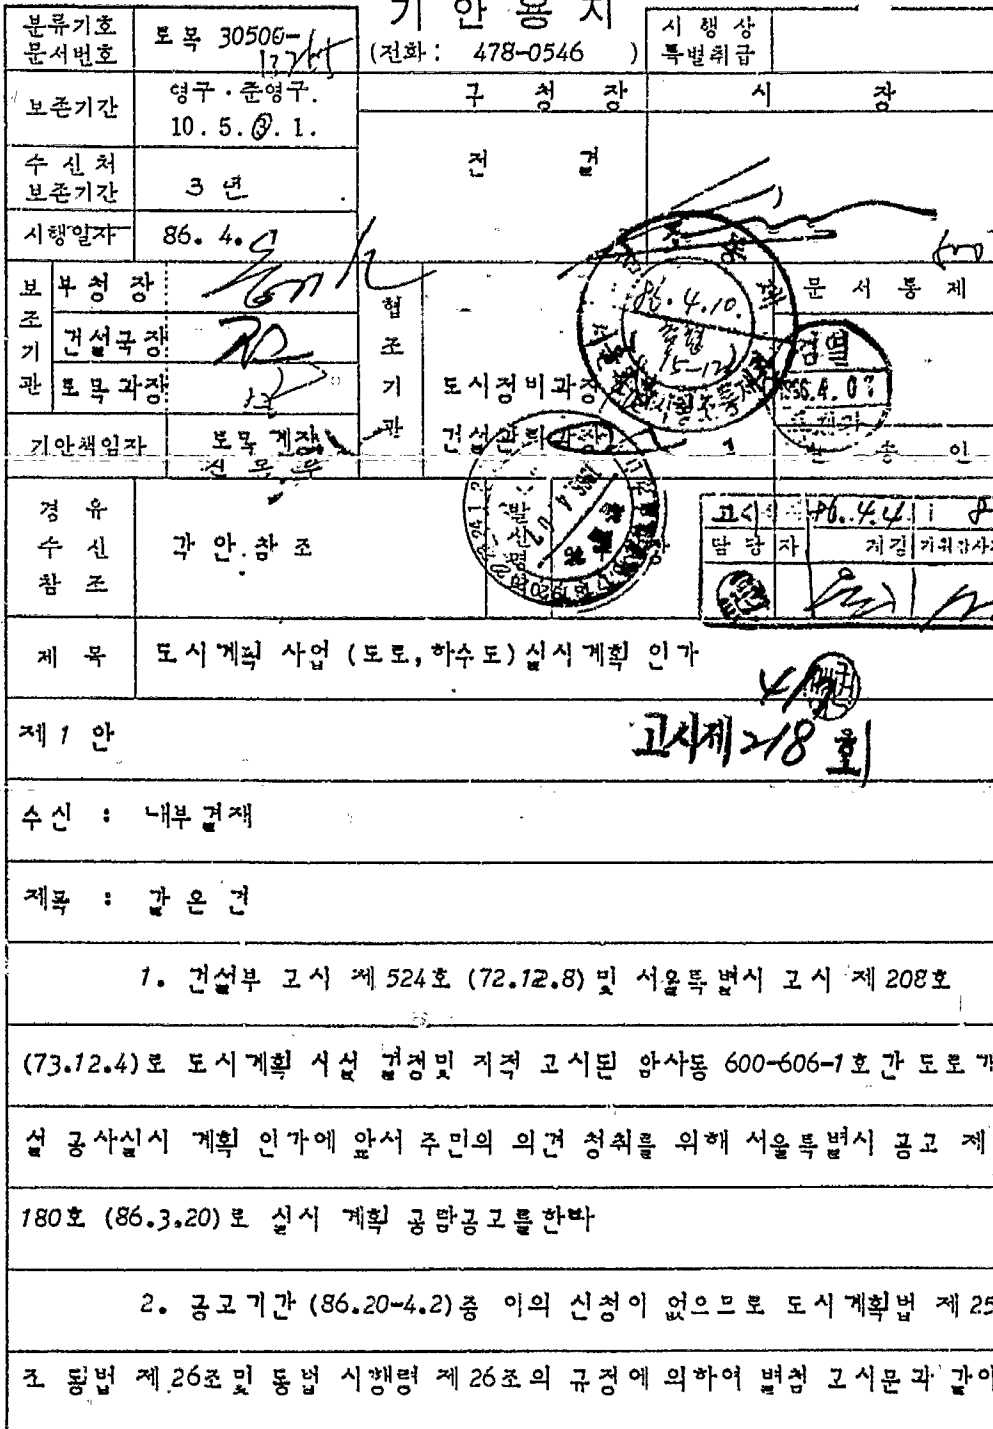 기 안 용 지
분류기호
문서번호
토목 30500-
(전화 : 478-0546 )
시 행 상
특별취급
보존기간
영구 · 준영구.
10. 5. 3. 1.
구 청 장
시 장
전 결
수 신 처
보존기간
3 년
시행일자
86. 4.
보조기관
부 청 장
건설국장
토목과장
협조기관
도시정비과장
건설관리과장
문 서 통 제
검열
1986.4.07
86.4.10.
기안책임자
토목계장
발 송 인
경 유
수 신
참 조
각 안 참 조
발신명
담 당 자
계장
제 목
도시계획 사업 (도로, 하수도) 실시계획 인가
제 1 안
고시제 218 호
수신 : 내부결재
제목 : 같은 건
1. 건설부 고시 제 524호 (72.12.8) 및 서울특별시 고시 제 208호
(73.12.4)로 도시계획 시설 결정및 지적 고시된 암사동 600-606-1호간 도로개
설 공사실시 계획 인가에 앞서 주민의 의견 청취를 위해 서울특별시 공고 제
180호 (86.3.20)로 실시 계획 공람공고를한바
2. 공고기간 (86.20-4.2)중 이의 신청이 없으므로 도시계획법 제 25
조 동법 제 26조및 동법 시행령 제 26조의 규정에 의하여 별첨 고시문과 같이